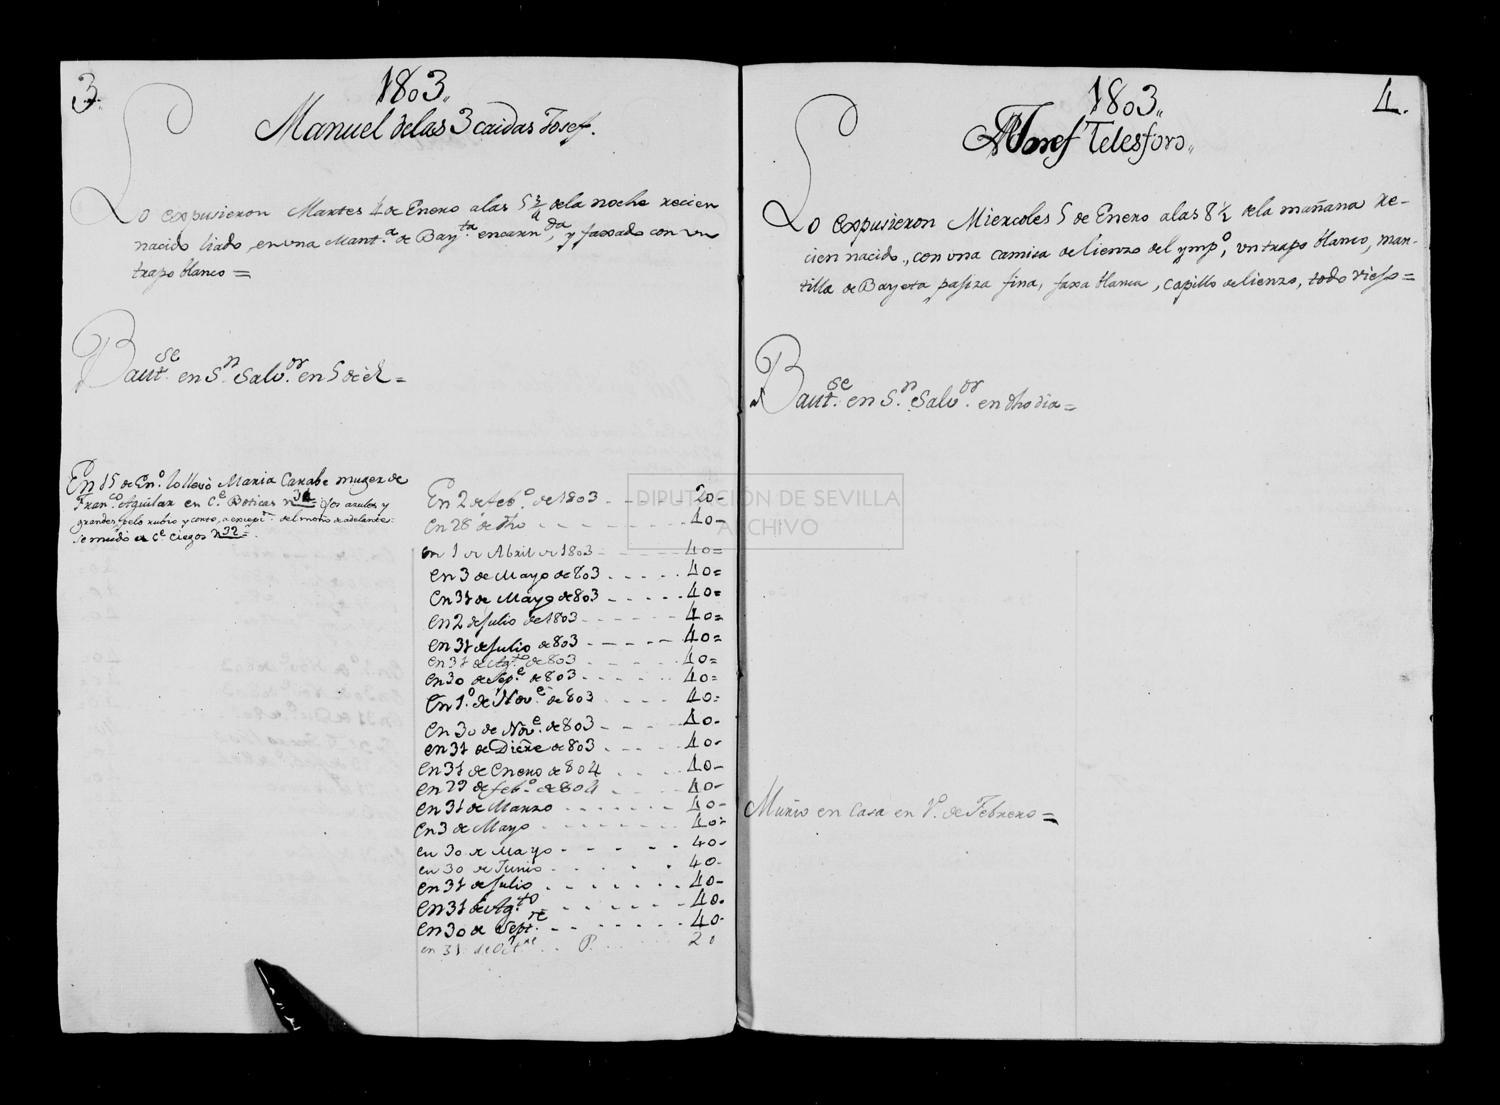 3.
1803.,
Manuel de las 3 caidas Josef.
Lo expusieron Martes 4 de Enero a las 5 3/4 de la noche recien
nacido liado, en una Mant.a de Bay.ta encarn.da, y faxado con un
trapo blanco =
Baut.se en S.n Salv.or en 5 de él =
En 15 de En.o lo llevó Maria Carabe muger de
Fran.co Aguilar en C.e Boticas n 31 = ojos azules y
grandes, pelo rubio y corto, a excepn. del moño de adelante:
Se mudó a C.e Ciegos n 32 =
En 2 de feb.o de 1803 - - - - 20-
En 28 de Dho - - - - 40-
en 1 de Abril de 1803 - - - - 40=
en 3 de Mayo de 803 - - - - 40=
en 31 de Mayo de 803 - - - - 40=
en 2 de Julio de 1803 - - - - 40=
en 31 de Julio de 803 - - - - 40=
en 31 de Ag.to de 803 - - - - 40=
en 30 de Sep.e de 803 - - - - 40=
en 1.o de Nov.e de 803 - - - - 40=
en 30 de Nov.e de 803 - - - - 40-
en 31 de Dicre de 803 - - - - 40-
en 31 de Enero de 804 . . . . 40-
en 29 de feb.o de 804 . . . . 40-
en 31 de Marzo . . . . 40-
en 3 de Mayo . . . . 40=
en 30 de Mayo - - - - 40-
en 30 de Junio . . . . 40-
en 31 de Julio . . . . 40-
en 31 de Ag.to - - - - 40-
en 30 de Sept.re - - - - 40-
en 31 de Oct.re . . P. . . . 20
4.
1803.,
Josef Telesforo.,
Lo expusieron Miercoles 5 de Enero a las 8 1/2 de la mañana re-
cien nacido, con una camisa de lienzo del ymp.o, un trapo blanco, man-
tilla de Bayeta pasiza fina, faxa blanca, capillo de lienzo, todo viejo =
Baut.se en S.n Salv.or en dho dia =
Murio en Casa en 1.o de Febrero =
DIPUTACIÓN DE SEVILLA
ARCHIVO